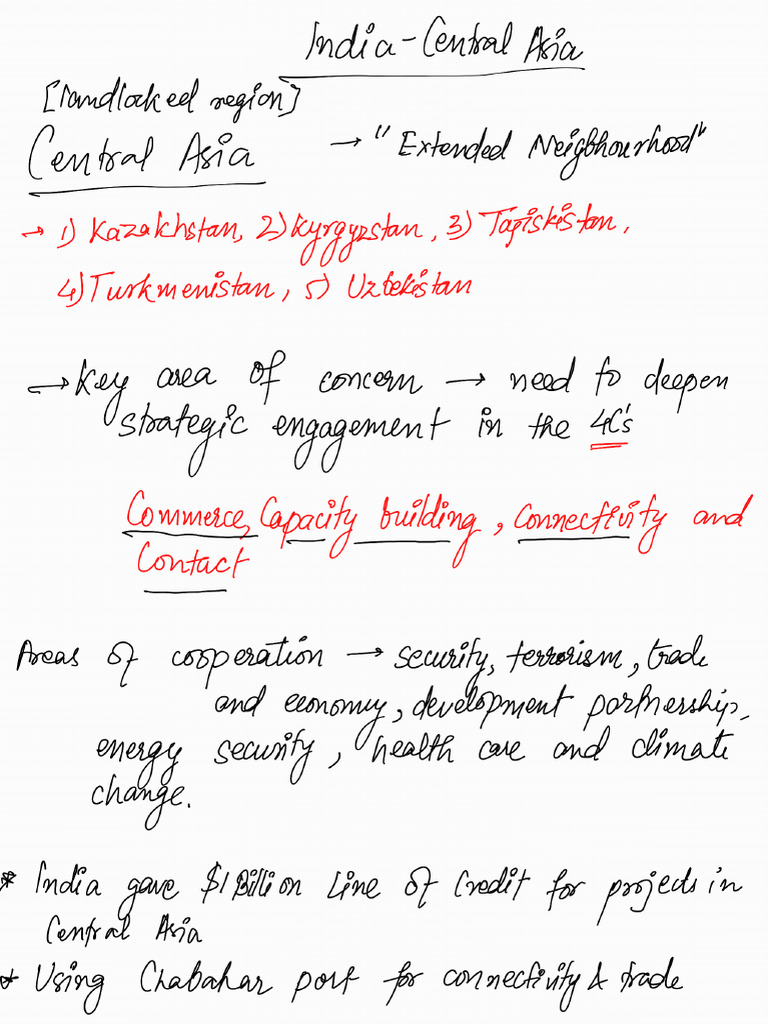 India-Central Asia
[landlocked region]
Central Asia → "Extended Neigbhourhood"
→ 1) Kazakhstan, 2) Kyrgyzstan, 3) Tapiskistan,
4) Turkmenistan, 5) Uzbekistan
→ Key area of concern → need to deepen
strategic engagement in the 4C's
Commerce, Capacity building, Connectivity and
Contact
Areas of cooperation → security, terrorism, trade
and economy, development partnership,
energy security, health care and climate
change.
* India gave $1 Billion Line of Credit for projects in
Central Asia
* Using Chabahar port for connectivity & trade